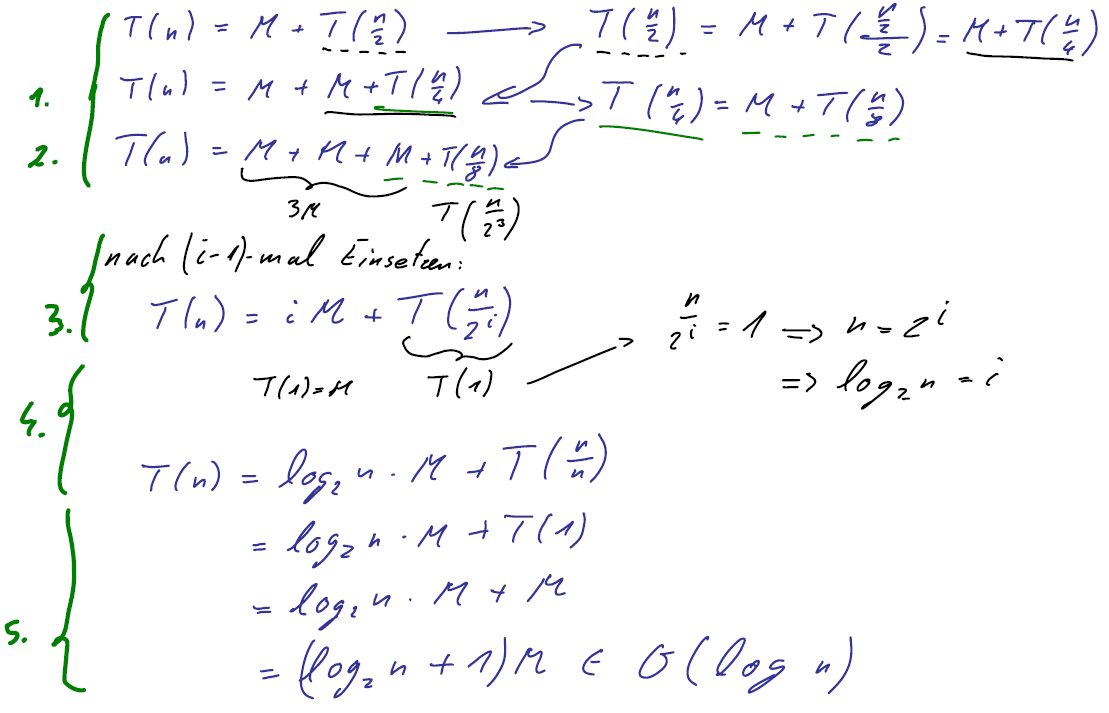 T(n) = M + T(n/2) → T(n/2) = M + T((n/2)/2) = M + T(n/4)
1. T(n) = M + M + T(n/4) → T(n/4) = M + T(n/8)
2. T(n) = M + M + M + T(n/8)
3M T(n/2³)
nach (i-1)-mal Einsetzen:
3. T(n) = i M + T(n/2^i) n/2^i = 1 => n = 2^i
T(1)=M T(1) => log₂ n = i
4.
T(n) = log₂ n · M + T(n/n)
= log₂ n · M + T(1)
= log₂ n · M + M
5.
= (log₂ n + 1) M ∈ O(log n)